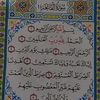 سُورَةُ الْفَاتِحَةِ
بِسْمِ اللَّهِ الرَّحْمَٰنِ
الرَّحِيمِ الْحَمْدُ لِلَّهِ رَبِّ الْعَالَمِينَ
الرَّحْمَٰنِ الرَّحِيمِ مَالِكِ يَوْمِ
الدِّينِ إِيَّاكَ نَعْبُدُ وَإِيَّاكَ
نَسْتَعِينُ اهْدِنَا الصِّرَاطَ
الْمُسْتَقِيمَ صِرَاطَ الَّذِينَ أَنْعَمْتَ
عَلَيْهِمْ غَيْرِ الْمَغْضُوبِ عَلَيْهِمْ